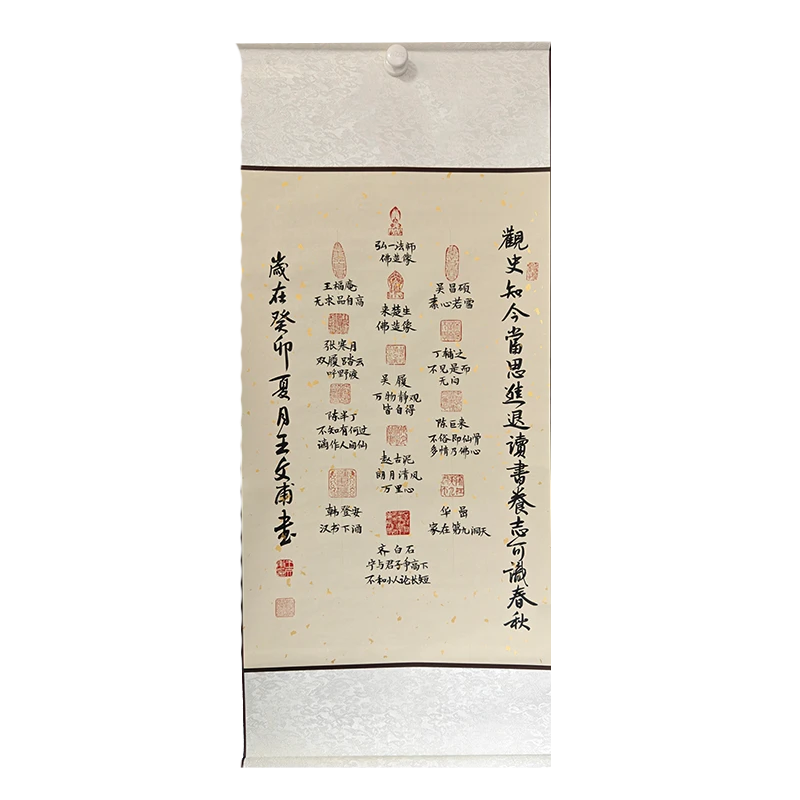 觀史知今當思進退讀書養志可識春秋
弘一法師
佛造像
吴昌硕
素心若雪
王福庵
无求品自高
来楚生
佛造像
丁輔之
不见是而
无闷
张寒月
双履踏云
吁野渡
吴履
万物静观
皆自得
陈巨来
不俗即仙骨
多情乃佛心
陈半丁
不知有何过
谪作人间仙
赵古泥
明月清风
万里心
华嵒
家在第九洞天
韩登安
汉书下酒
齐白石
宁与君子争高下
不和小人论长短
歲在癸卯夏月王文甫书